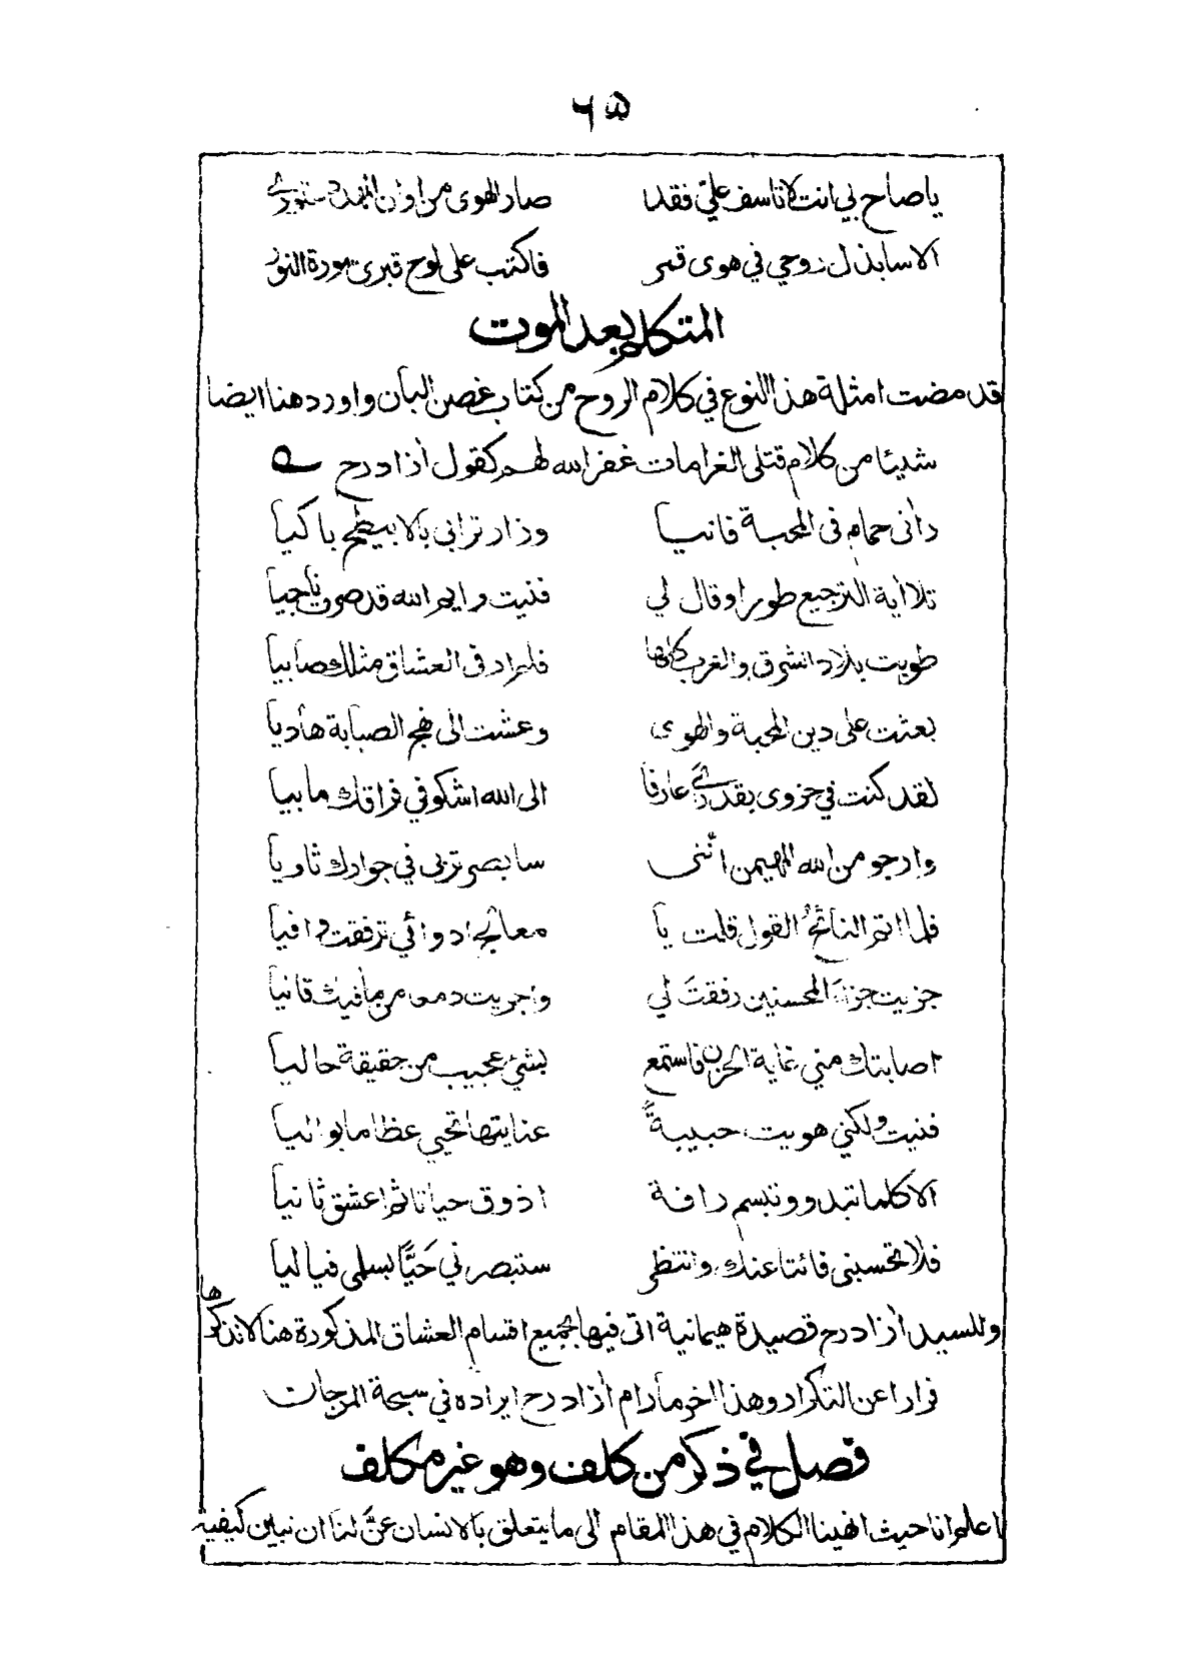 ۶۵
يا صاحبي انت لا تاسف علي فقد صار الهوى من
الا سابذل روحي في هوى قمر فاكتب على لوح قبري سورة النور
المتكلم بعد الموت
قد مضت امثلة هذا النوع في كلام الروح من كتاب غصن البان واورد هنا ايضا
شيئا من كلام قتلى الغرامات غفر الله لهم كقول اٰزاد رح
راٰني حمام في المحبة فانيا وزار ترابي بالابيطح باكيا
تلا اٰية الترجيع طورا وقال لي فنيت وايم الله قد صرت ناجيا
طويت بلاد الشرق والغرب كلها فلم ار في العشاق مثلك صابيا
بعثت على دين المحبة والهوى وعشت الى نهج الصبابة هاديا
لقد كنت في حزوى بقدرك عارفا الى الله اشكو في فراقك ما بيا
وارجو من الله المهيمن انّني سابصر تربي في جوارك ثاويا
فلما اتم النائح القول قلت يا معالج ادوائي ترفقت وافيا
جزيت جزاء المحسنين رفقتَ لي واجريت دمعا من مأقيك قانيا
اصابتك مني غاية الحزن فاستمع بشيء عجيب من حقيقة حاليا
فنيت ولكني هويت حبيبةً عنايتها تحيي عظاما بواليا
الا كلما تبدو وتبسم رافة اذوق حياتا ثم اعشق ثانيا
فلا تحسبني فائتا عنك وانتظر ستبصرني حَيًّا بسلمى فياليا
وللسيد اٰزاد رح قصيدة هيمانية اتى فيها بجميع اقسام العشاق المذكورة هنا لا نذكرها
فرارا عن التكرار وهذا اٰخر ما رام اٰزاد رح ايراده في سبحة المرجان
فصل في ذكر من كلف وهو غير مكلف
اعلم انا حيث انهينا الكلام في هذا المقام الى ما يتعلق بالانسان عنَّ لنا ان نبين كيفية